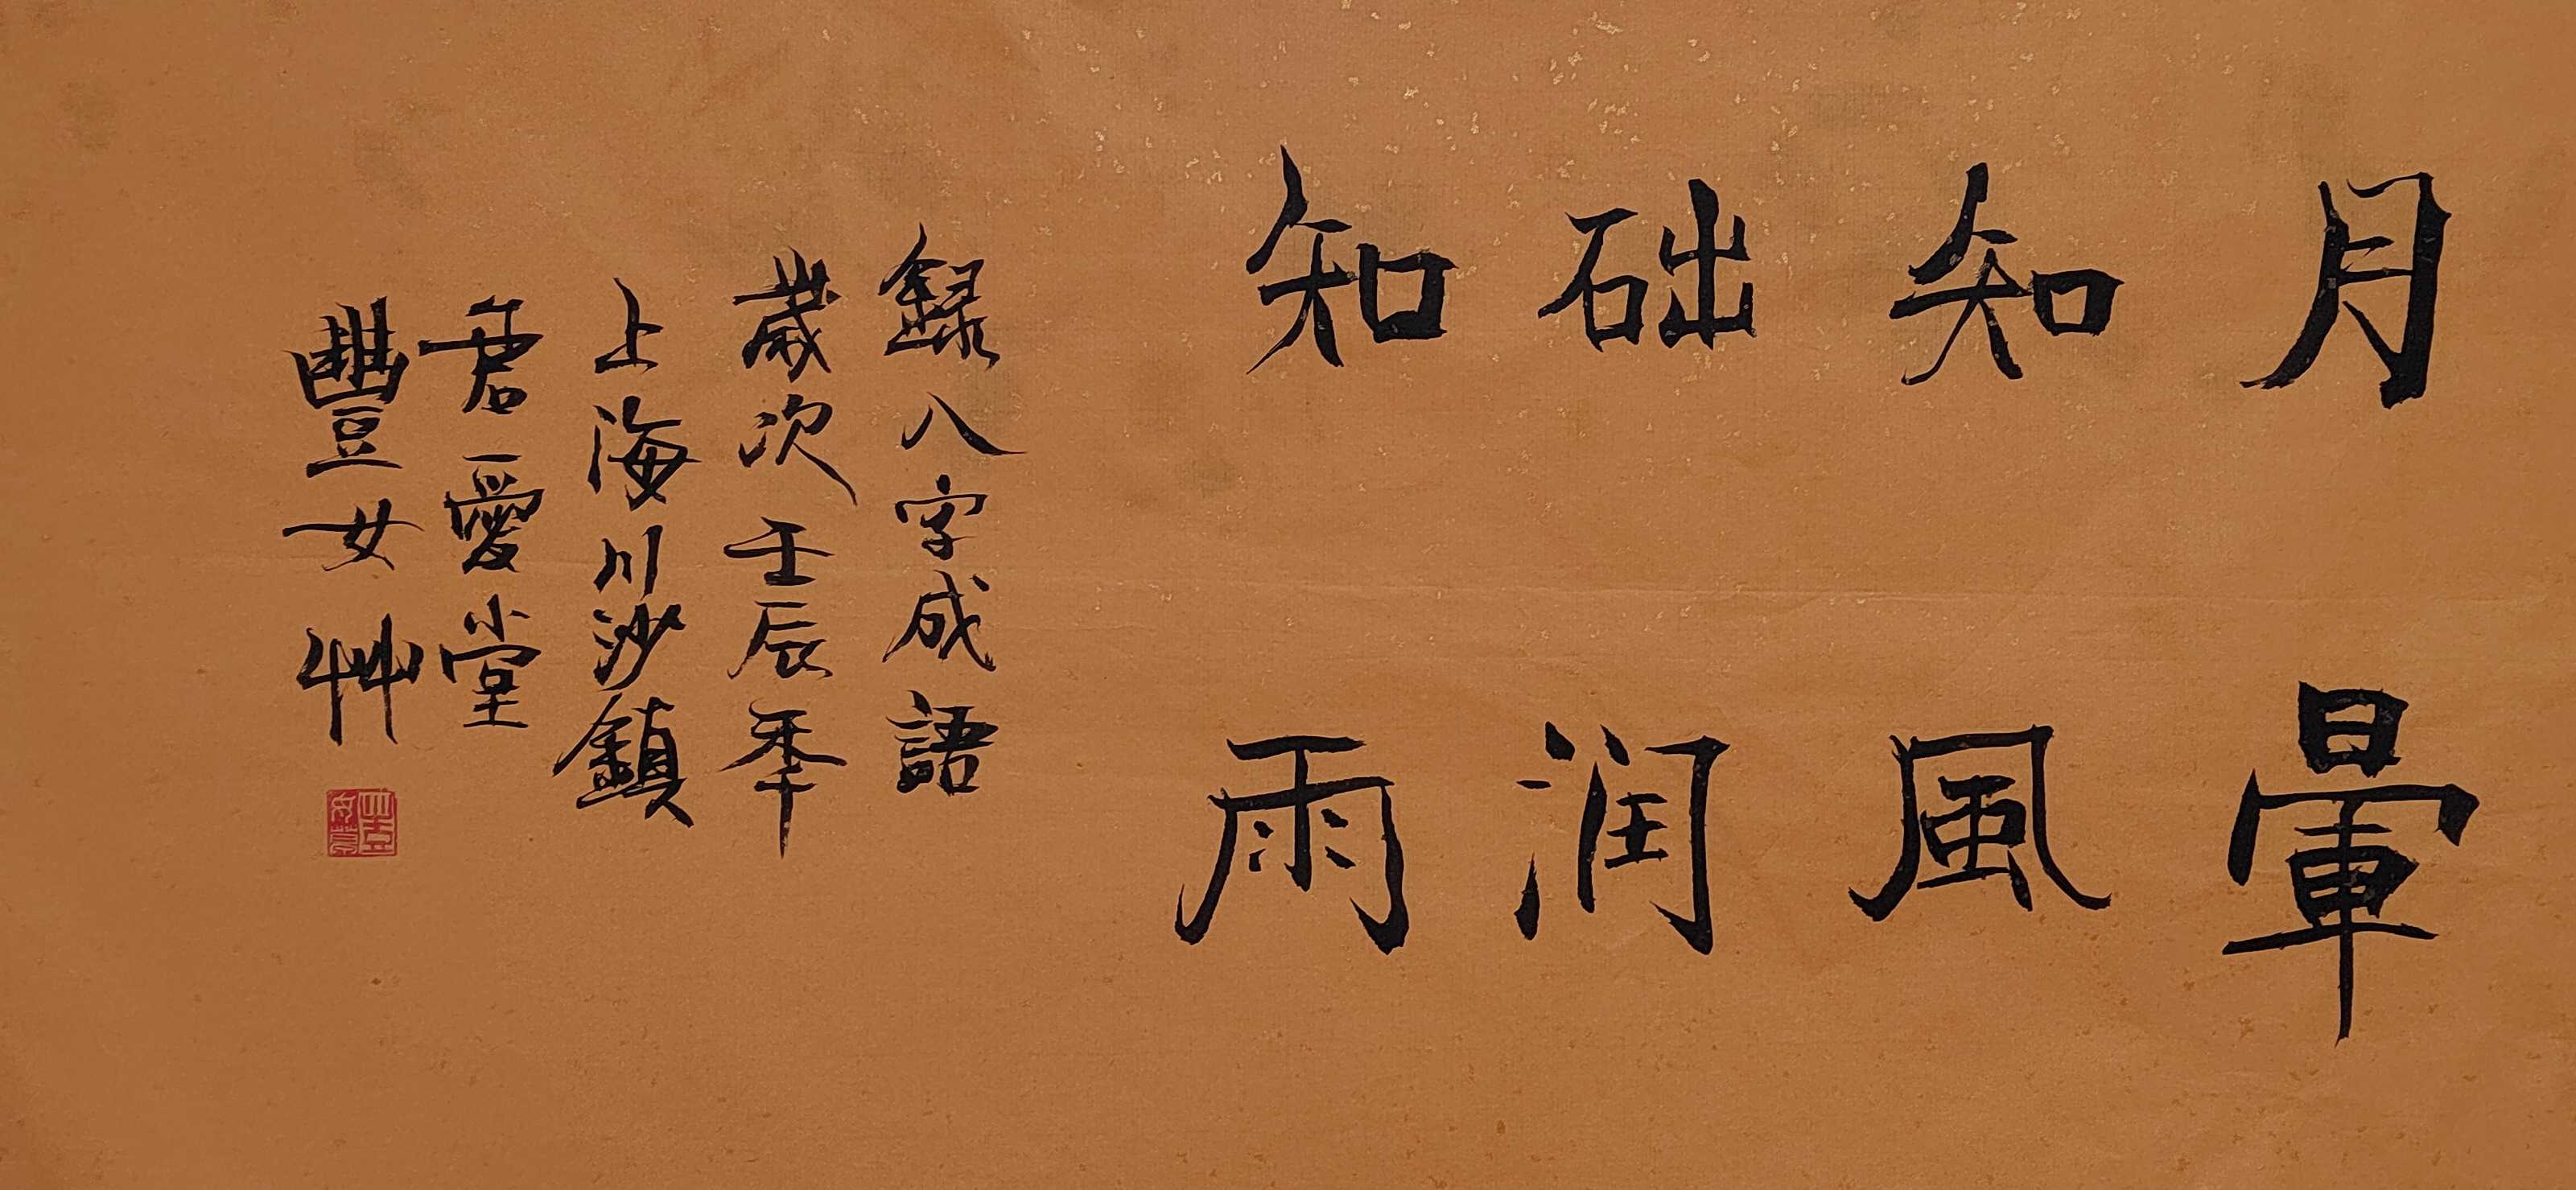 月暈
知風
础润
知雨
録八字成語
歲次壬辰秊
上海川沙鎮
君愛堂
豐女艸